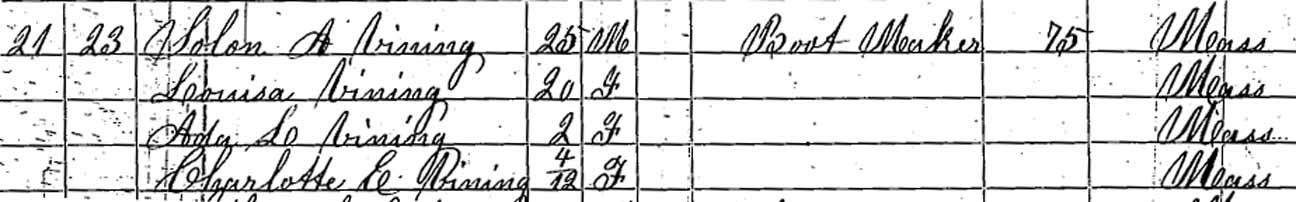 21 23 Solon A Vining 25 M Boot Maker 75 Mass
Louisa Vining 20 F Mass
Ada L Vining 2 F Mass
Charlotte E. Vining 4/12 F Mass